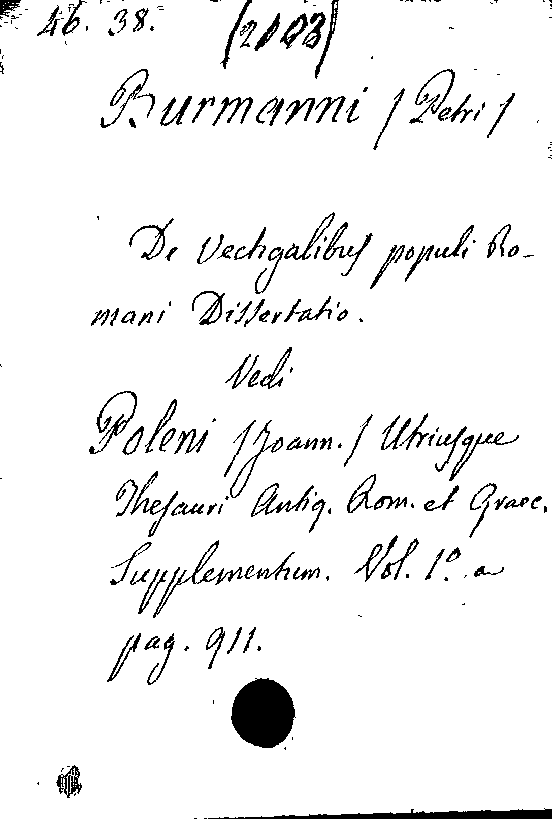 46. 38. (2103)
Burmanni / Petri /
De Vectigalibus populi Ro-
mani Dissertatio.
Vedi
Poleni / Joann. / Utriusque
Thesauri Antiq. Rom. et Graec.
Supplementum. Vol. 1º a
pag. 911.